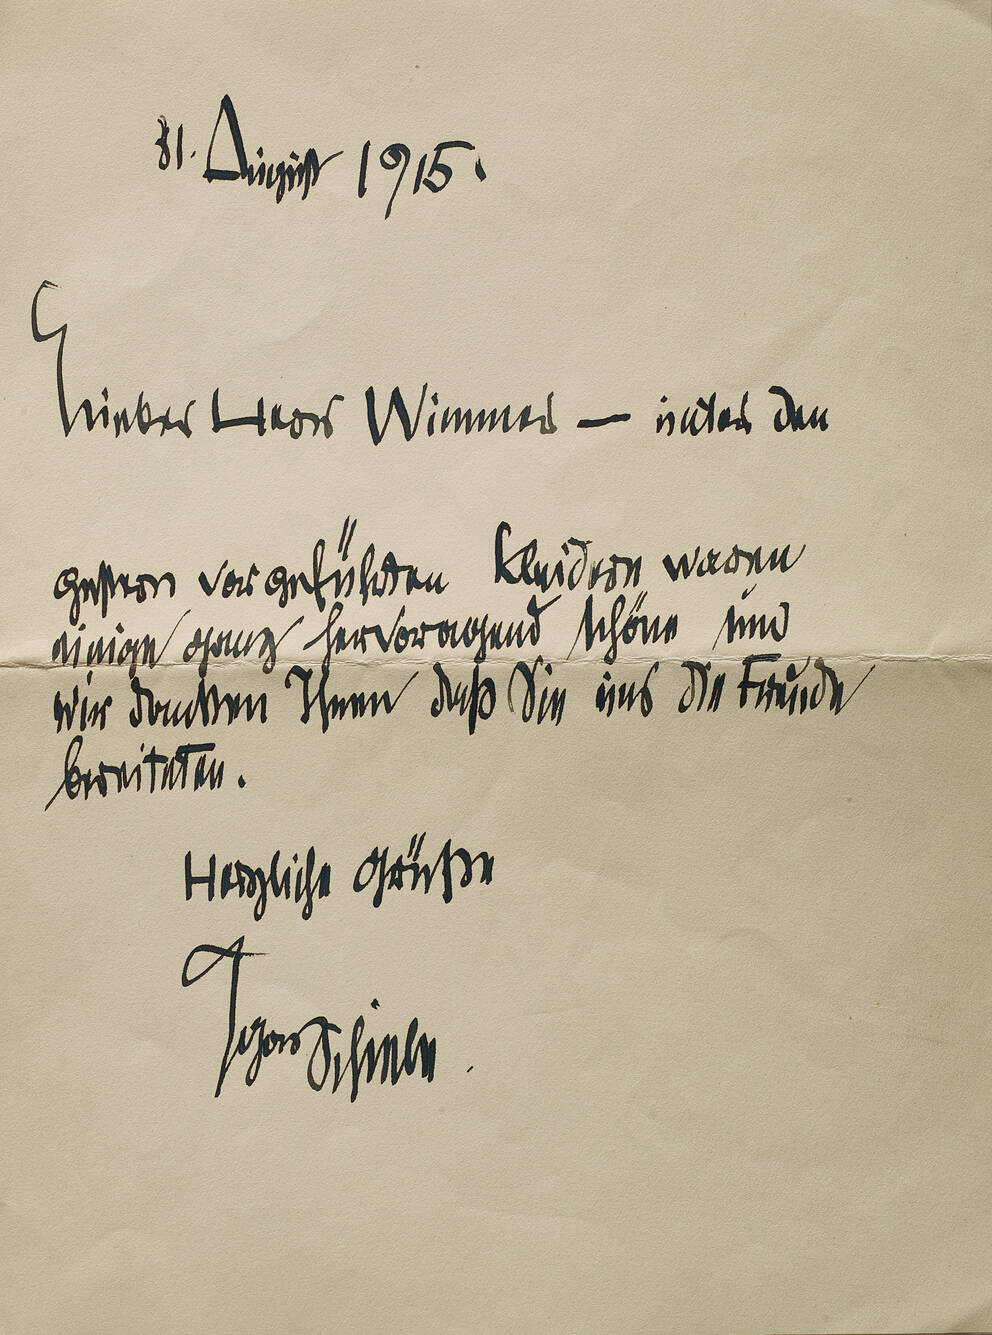 31. August 1915.
Lieber Herr Wimmer — unter den
gestern vorgeführten Kleidern waren
einige ganz hervoragend schöne und
wir danken Ihnen daß Sie uns die Freude
bereiteten.
Herzliche Grüße
Egon Schiele.